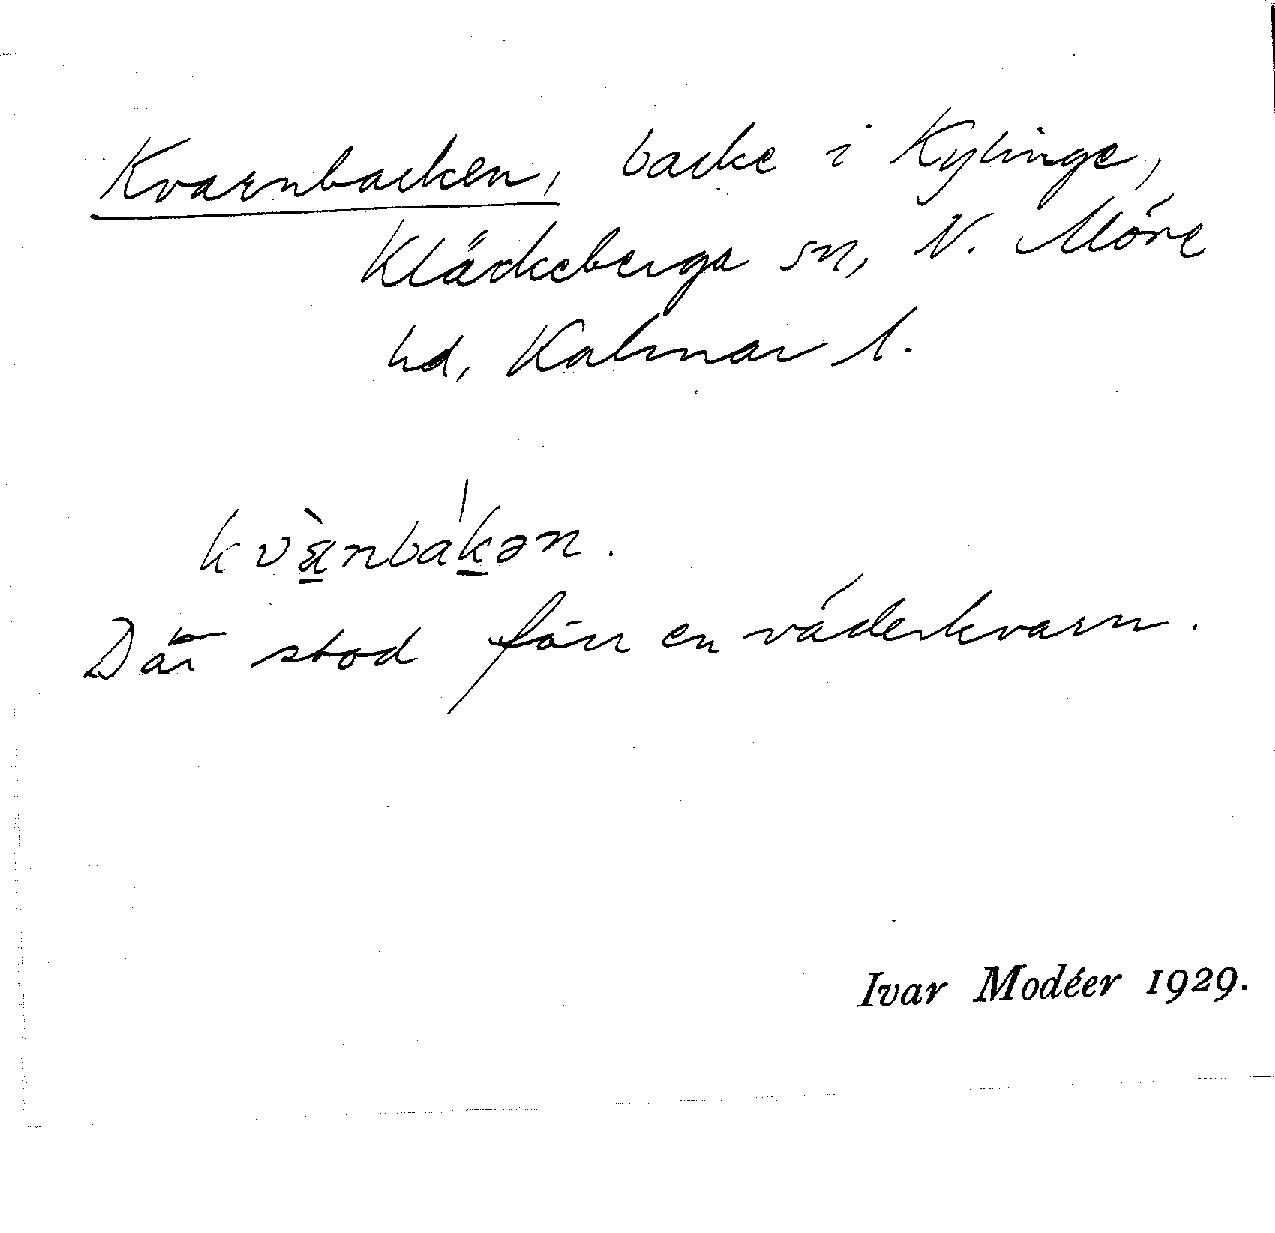 Kvarnbacken, backe i Kylinge,
Kläckeberga sn, N. Möre
hd, Kalmar l.
kvæ̀nbákən.
Där stod förr en väderkvarn.
Ivar Modéer 1929.